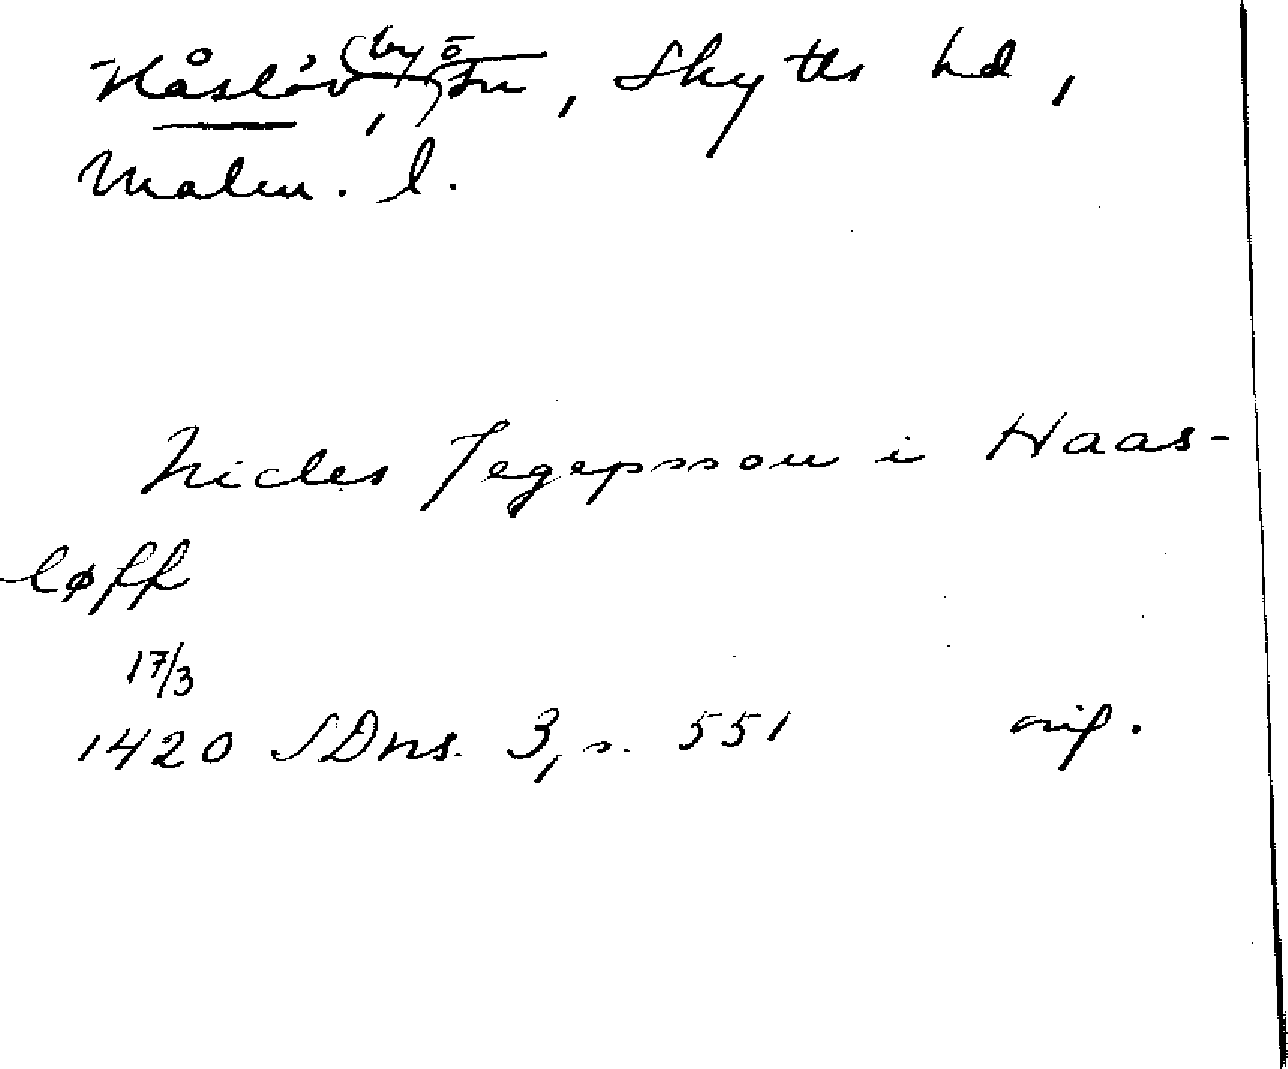 Håslöv (by ō sn), Skytts hd,
Malm. l.
Nicles Jegepsson i Haas-
løff
17/3
1420 SDns. 3, s. 551 orig.